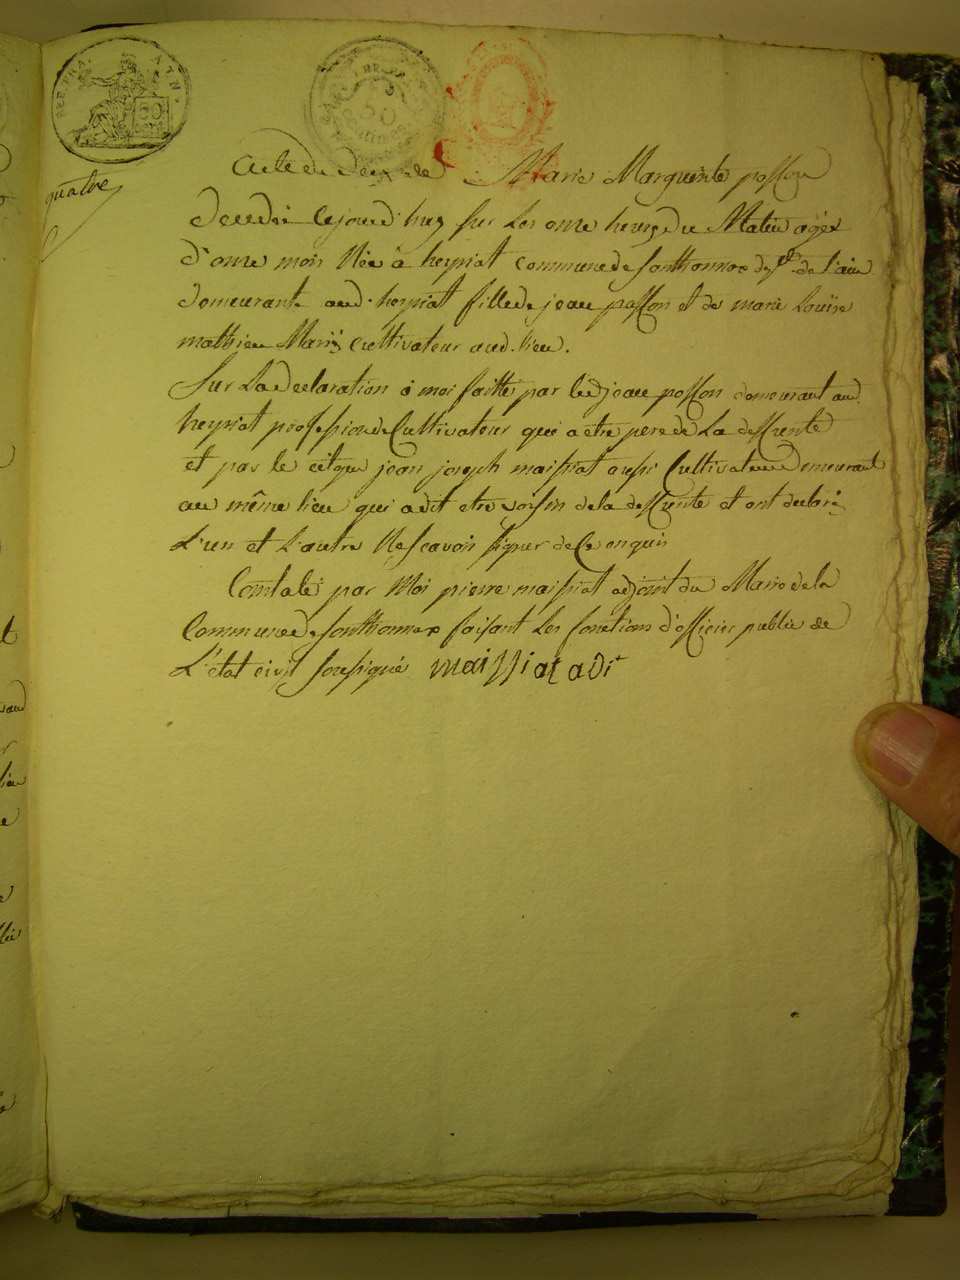 REP. FRA. ATN.
50
quatre
Acte de deces de Marie Marguerite posson
decedée cejourd'huy sur les onze heures du Matin agée
d'onze mois Née à heyriat commune de sonthonnax dept. de l'ain
demeurant aud. heyriat fille de jean posson et de marie Louise
mathieu Mariés cultivateur aud. lieu.
Sur La declaration à moi faitte par led jean posson demeurant aud.
heyriat profession de Cultivateur qui a etre pere de La deffunte
et par le citoyen jean joseph maissiat aussi Cultivateur Demeurant
au même lieu qui a dit etre voisin de la deffunte et ont declaré
L'un et L'autre Ne scavoir signer de Ce enquis
Constaté par Moi pierre maissiat adjoint du Maire de la
Commune de sonthonnax faisant Les fonctions d'officier public de
L'état civil soussigné maissiat adit